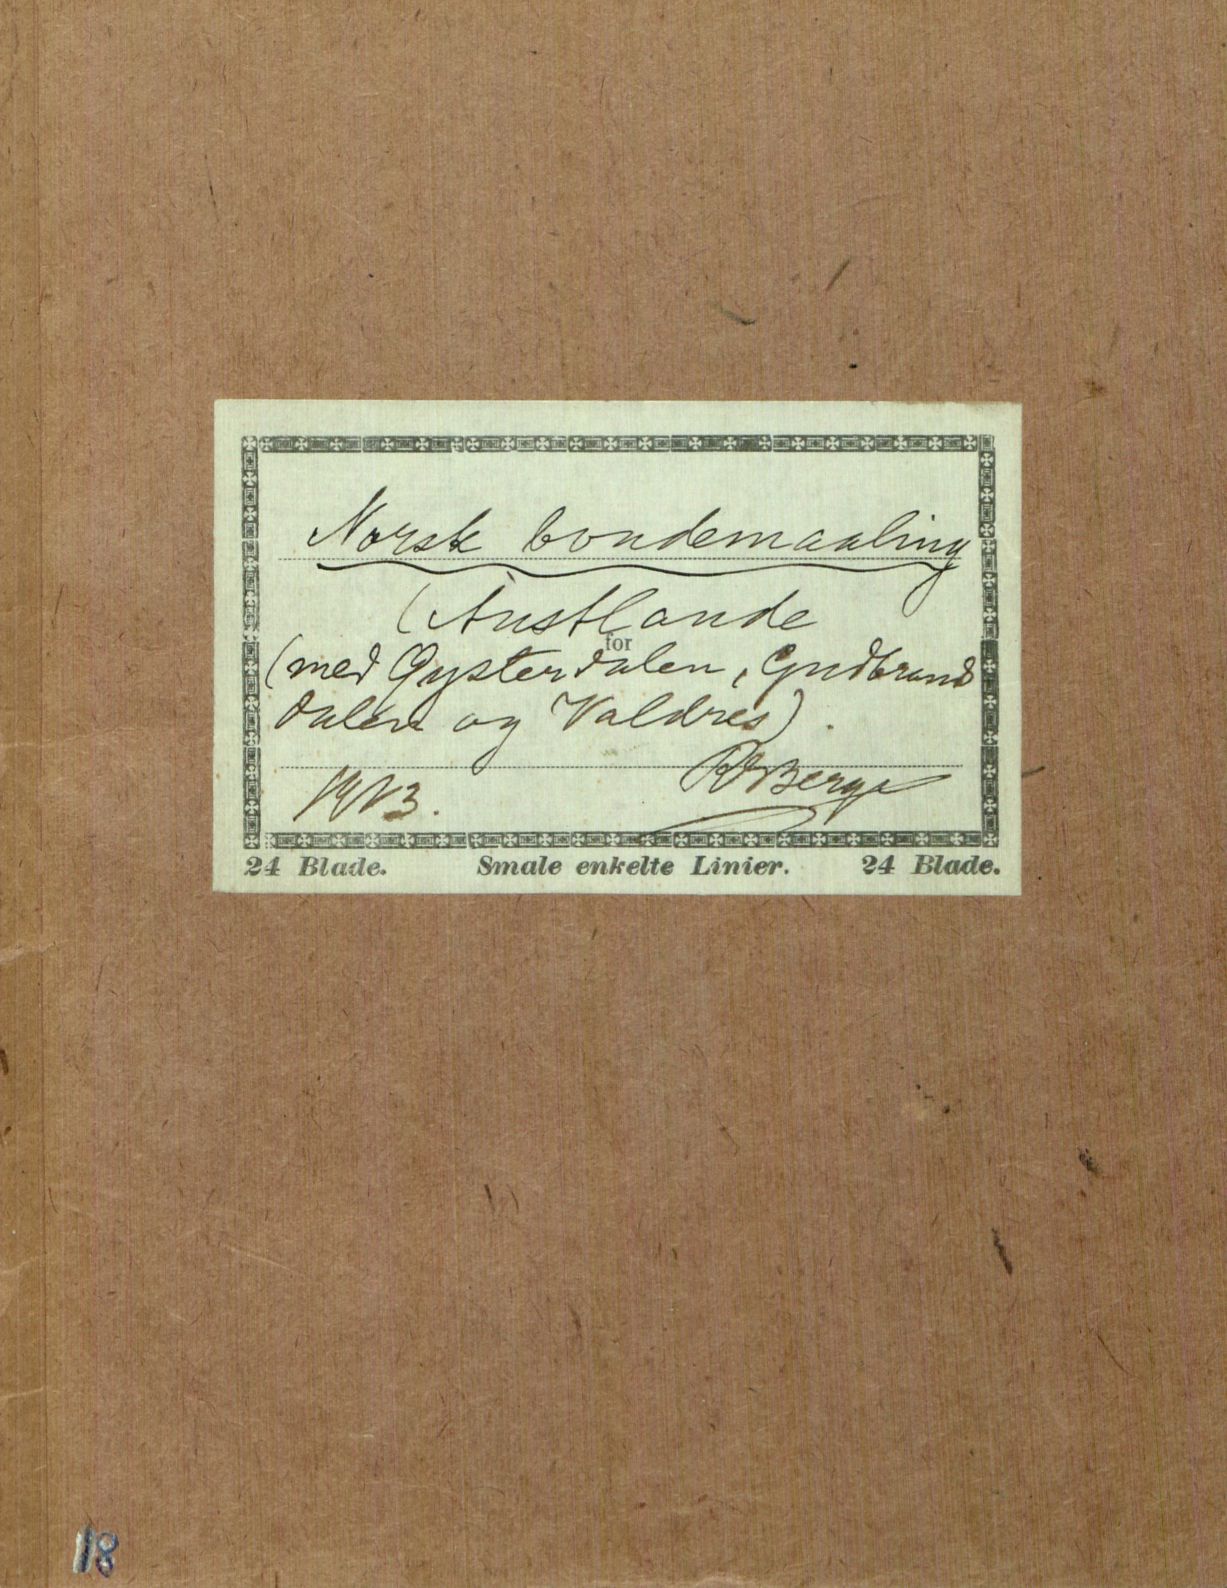 Norsk bondemaaling
(Austlande
for
(med Øysterdalen, Gudbrands
dalen og Valdres).
1913.
RBerge
24 Blade. Smale enkelte Linier. 24 Blade.
18